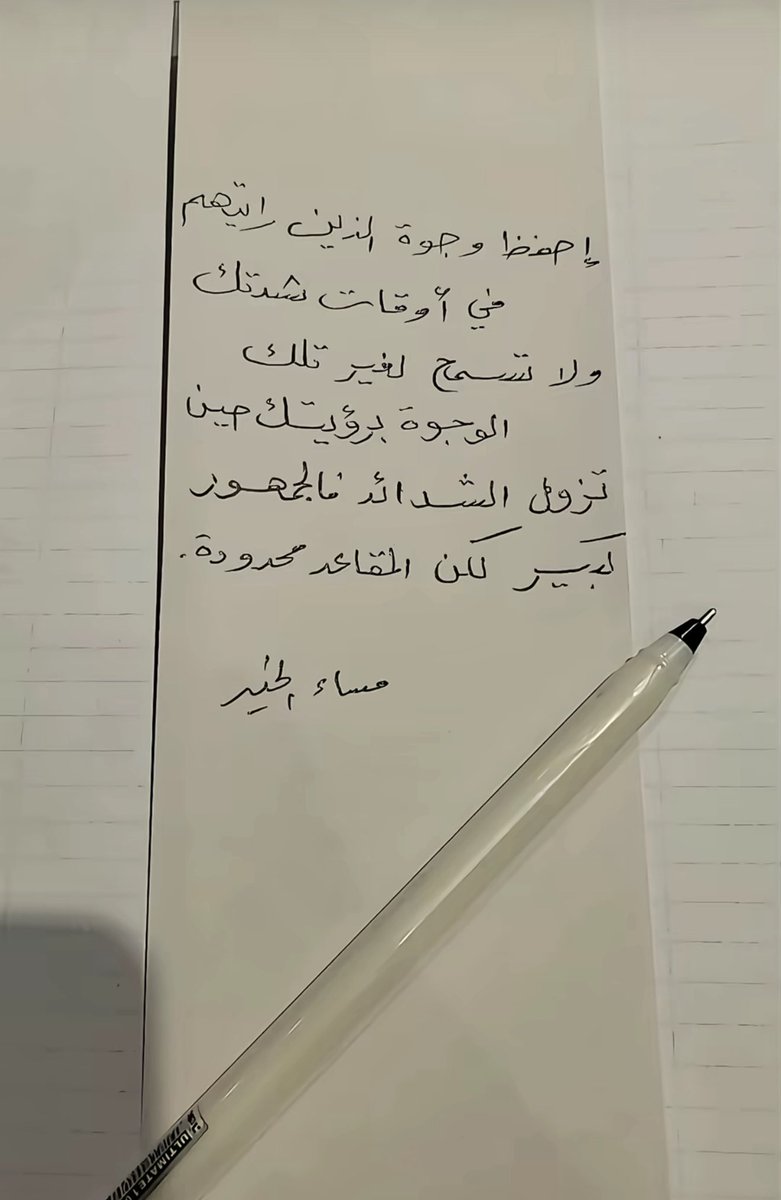 إحفظ وجوة الذين راتيهم
في أوقات شدتك
ولا تسمح لغير تلك
الوجوة برؤيتك حين
تزول الشدائد فالجمهور
كبير لكن المقاعد محدودة.
مساء الخير
ULTIMATE